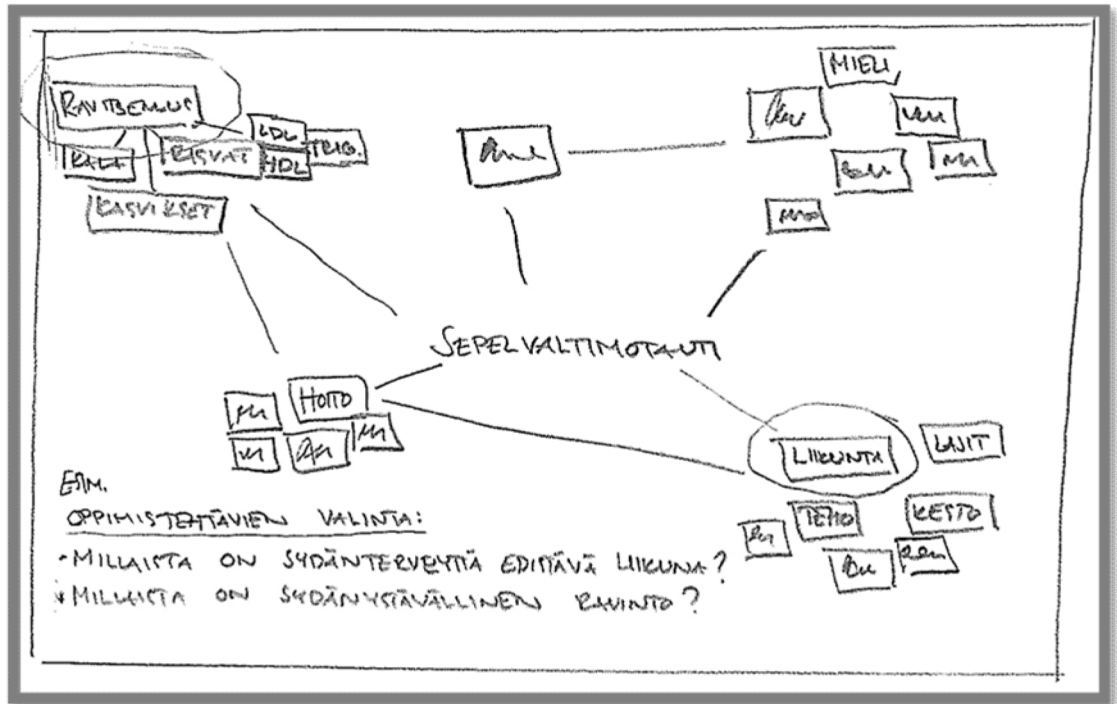 MIELI
RAVITSEMUS
LDL
TRIG.
KALA
RASVAT
HDL
KASVIKSET
SEPELVALTIMOTAUTI
HOITO
LIIKUNTA
LAJIT
TEHO
KESTO
ESIM.
OPPIMISTEHTÄVIEN VALINTA:
- MILLAISTA ON SYDÄNTERVEYTTÄ EDISTÄVÄ LIIKUNA?
MILLAISTA ON SYDÄNYSTÄVÄLLINEN RAVINTO?